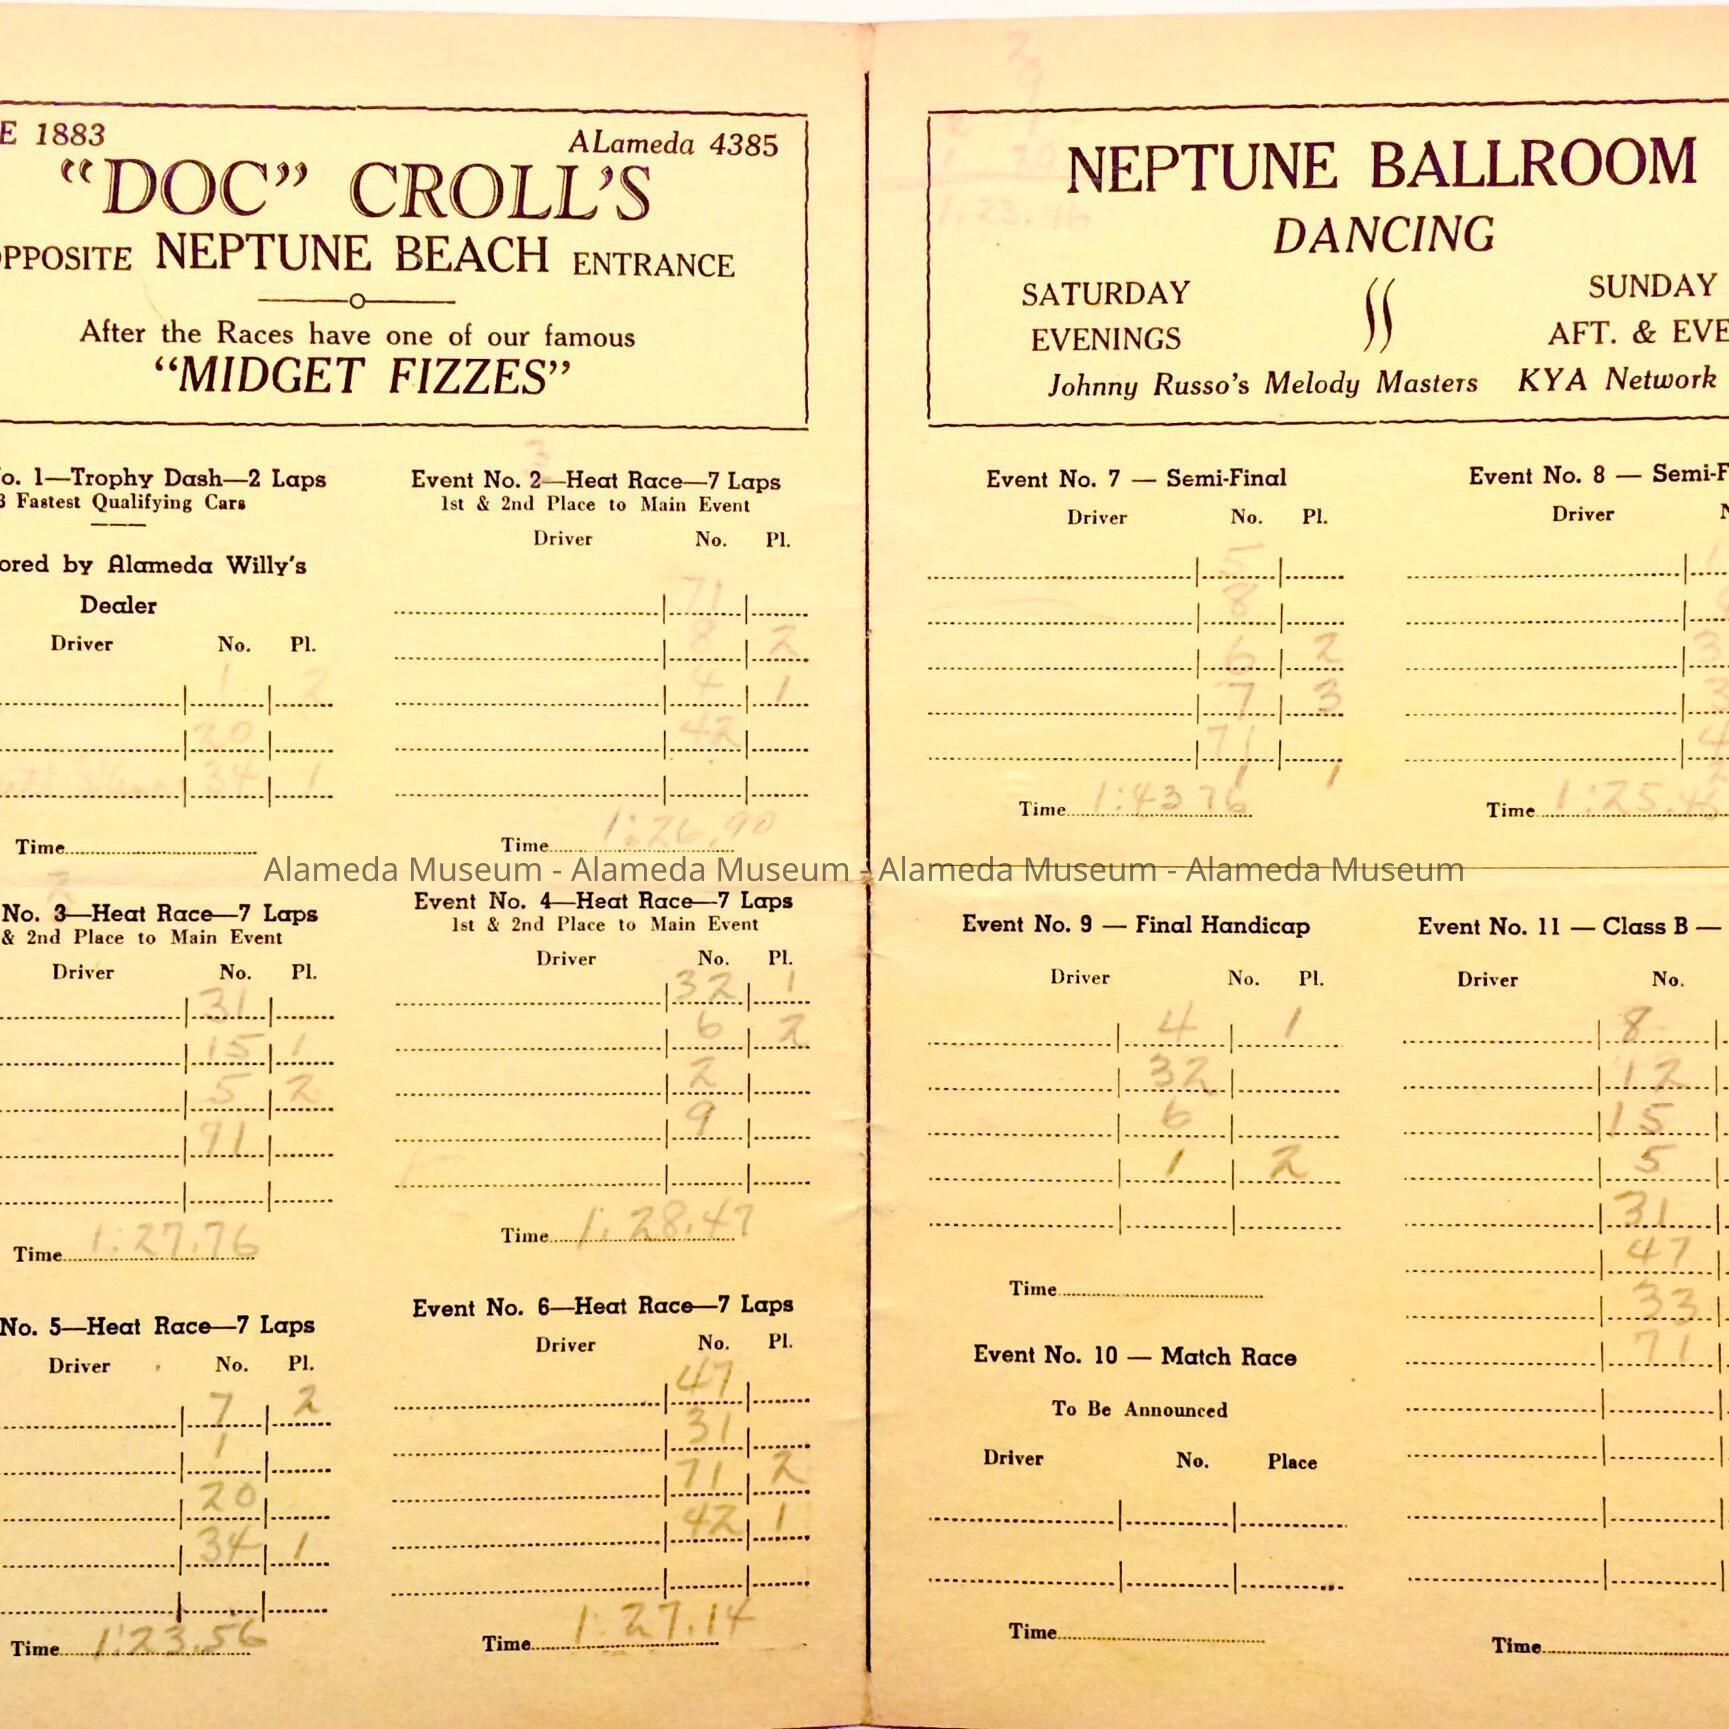 E 1883 ALameda 4385
“DOC” CROLL’S
OPPOSITE NEPTUNE BEACH ENTRANCE
After the Races have one of our famous
“MIDGET FIZZES”
o. 1—Trophy Dash—2 Laps
3 Fastest Qualifying Cars
ored by Alameda Willy's
Dealer
Driver No. Pl.
1 2
20
34 1
Time
Event No. 2—Heat Race—7 Laps
1st & 2nd Place to Main Event
Driver No. Pl.
71
8 2
4 1
42
Time 1:26.90
No. 3—Heat Race—7 Laps
& 2nd Place to Main Event
Driver No. Pl.
31
15 1
5 2
91
Time 1:27.76
Event No. 4—Heat Race—7 Laps
1st & 2nd Place to Main Event
Driver No. Pl.
32 1
6 2
2
9
Time 1:28.47
No. 5—Heat Race—7 Laps
Driver No. Pl.
7 2
1
20
34 1
Time 1:23.56
Event No. 6—Heat Race—7 Laps
Driver No. Pl.
47
31
71 2
42 1
Time 1:27.14
1:23.46
NEPTUNE BALLROOM
DANCING
SATURDAY SUNDAY
EVENINGS AFT. & EVE
Johnny Russo's Melody Masters KYA Network
Event No. 7 — Semi-Final
Driver No. Pl.
5
8
6 2
7 3
71
1 1
Time 1:43 76
Event No. 8 — Semi-F
Driver
Time 1:25.46
Event No. 9 — Final Handicap
Driver No. Pl.
4 1
32
6
1 2
Time
Event No. 10 — Match Race
To Be Announced
Driver No. Place
Time
Event No. 11 — Class B —
Driver No.
8
12
15
5
31
47
33
71
Time
Alameda Museum - Alameda Museum - Alameda Museum - Alameda Museum